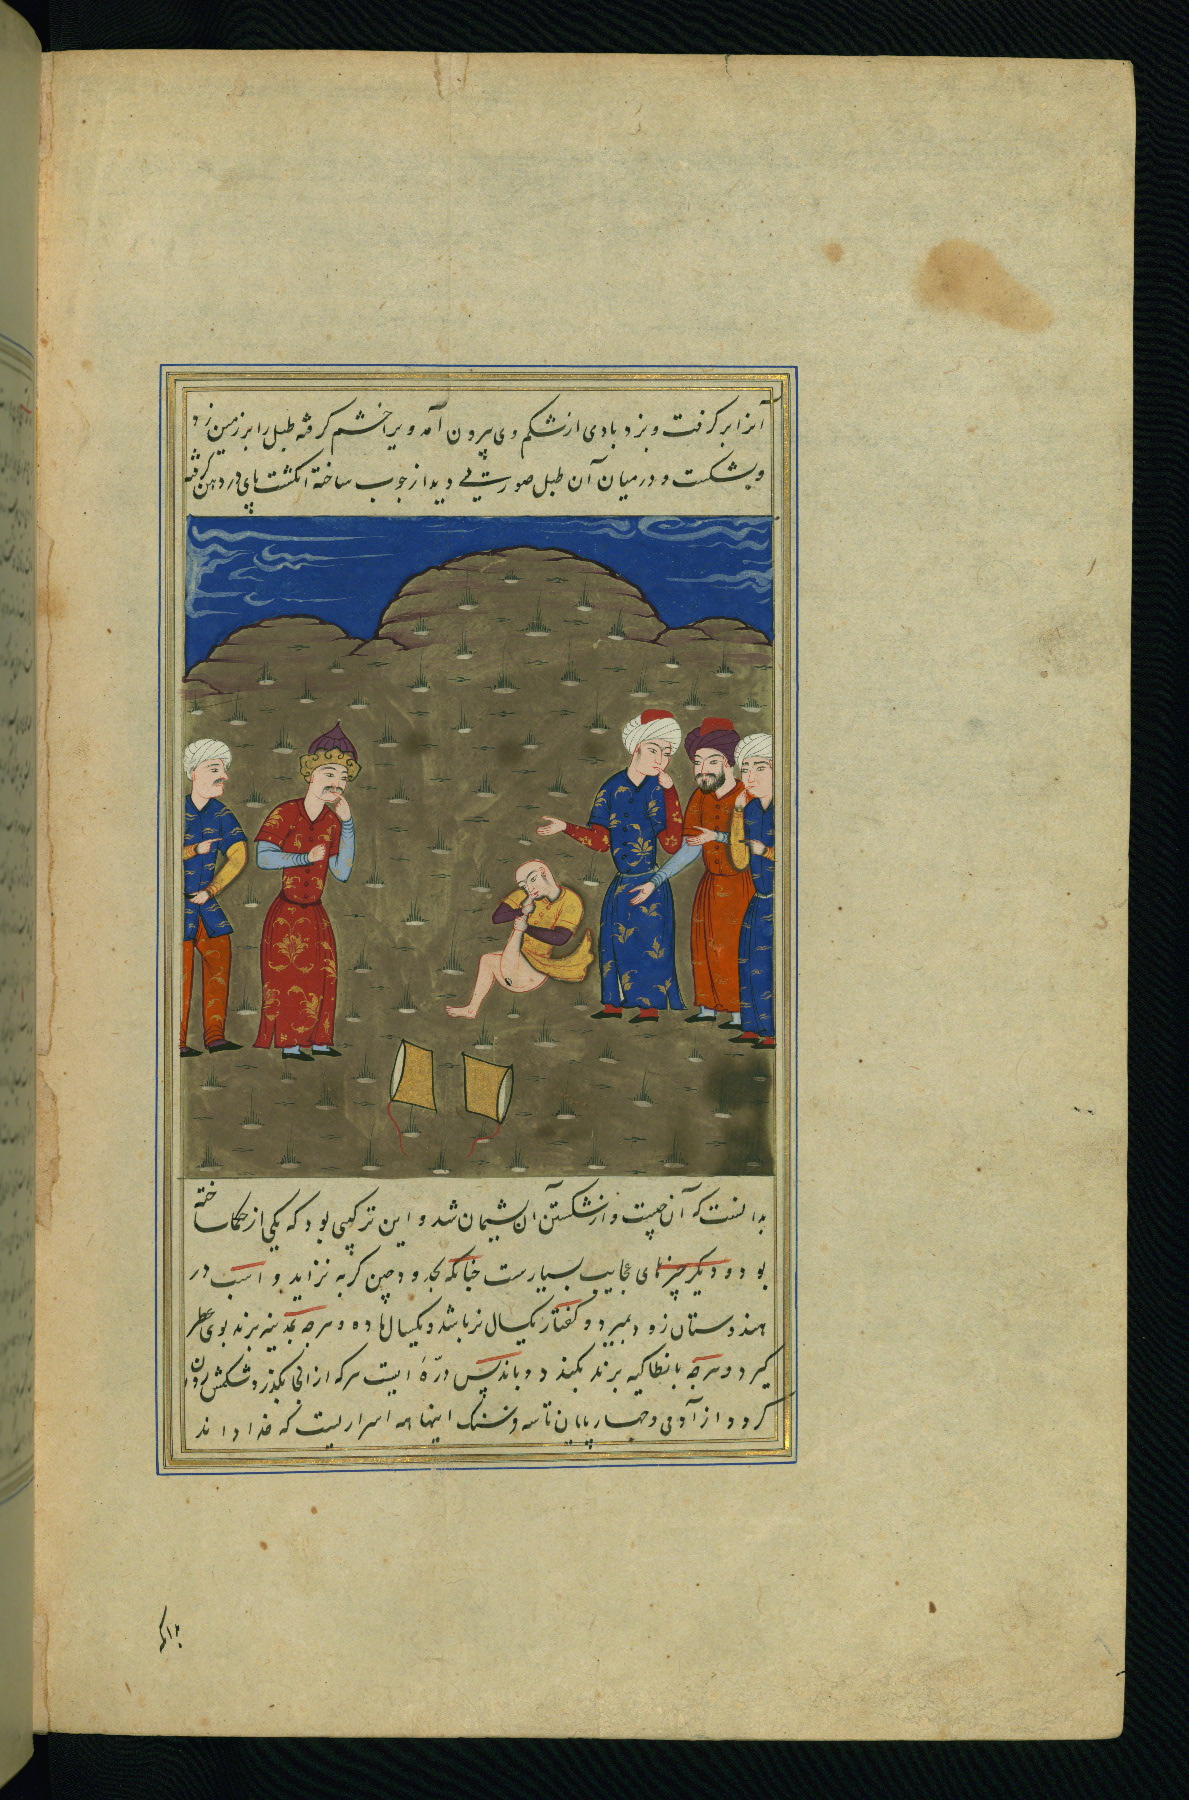 آنرا برگرفت و بزد بادی از شکم وی بیرون آمد ویرا خشم گرفته طبل را بر زمین زد
و بشکست و در میان آن طبل صورتی دید از چوب ساخته انگشت پای در دهن گرفته
بدانست که آن چیست و از شکستن آن پشیمان شد و این ترکیبی بود که یکی از حکما ساخته
بود و دیگر چیزهای عجایب بسیارست چنانکه بحدود چین گربه نزاید و اسب در
هندوستان زود بمیرد و کفتار یکسال نر باشد و یکسال ماده و هرچه بمدینه برند بوی عطر
گیرد و هرچه بانطاکیه برند بکندد و باندلس درهٔ ایست هرکه از آنجا بگذرد شکمش روان
گردد از آدمی و چهارپایان تا سه فرسنگ اینها همه اسراریست که خدا داند